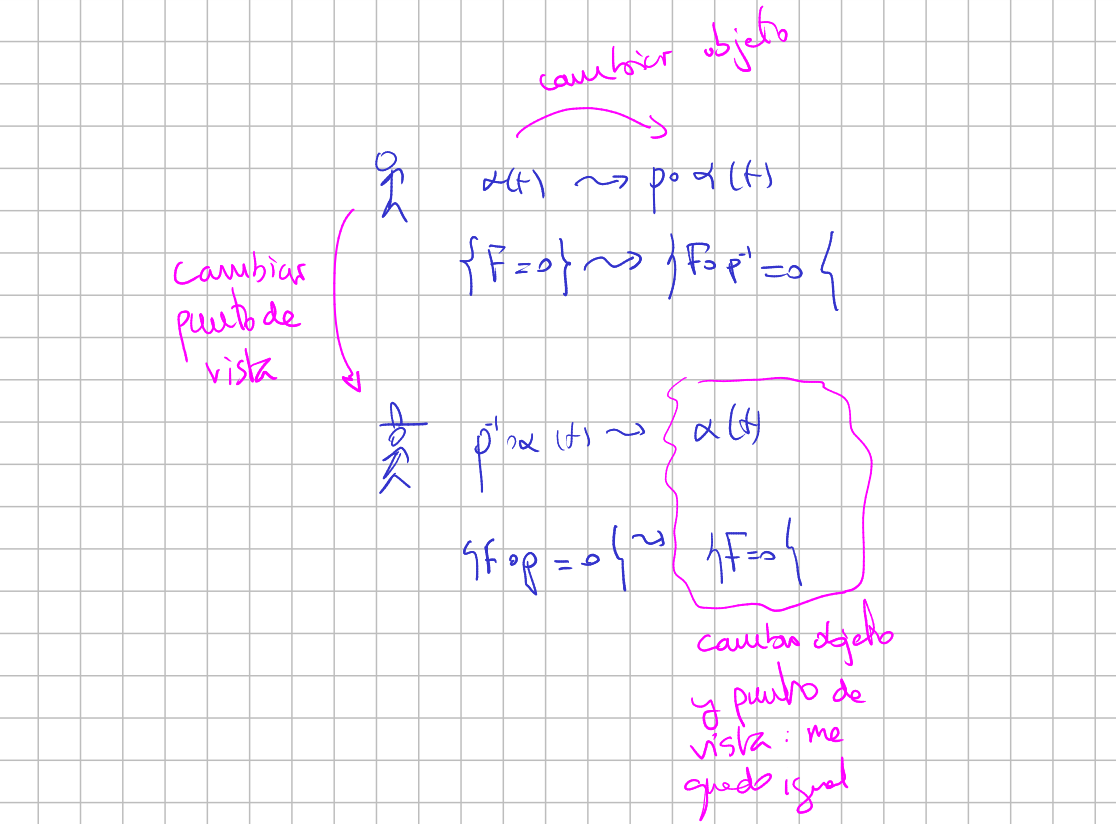 cambiar objeto
α(t) ⇝ p∘α(t)
{F=0} ⇝ {F∘p⁻¹=0}
cambiar
punto de
vista
p⁻¹∘α(t) ⇝ α(t)
{F∘p=0} ⇝ {F=0}
cambiar objeto
y punto de
vista: me
quedo igual